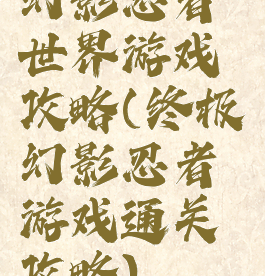 幻影忍者
世界游戏
攻略(终极
幻影忍者
游戏通关
攻略)